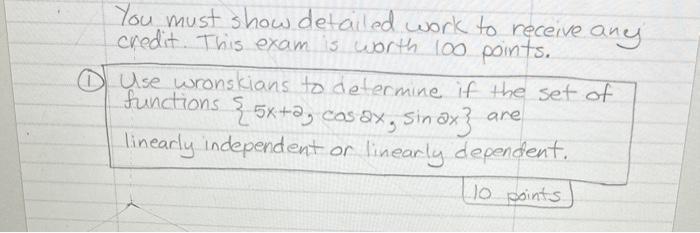 You must show detailed work to receive any
credit. This exam is worth 100 points.
① Use wronskians to determine if the set of
functions {5x+2, cos2x, sin2x} are
linearly independent or linearly dependent.
10 points